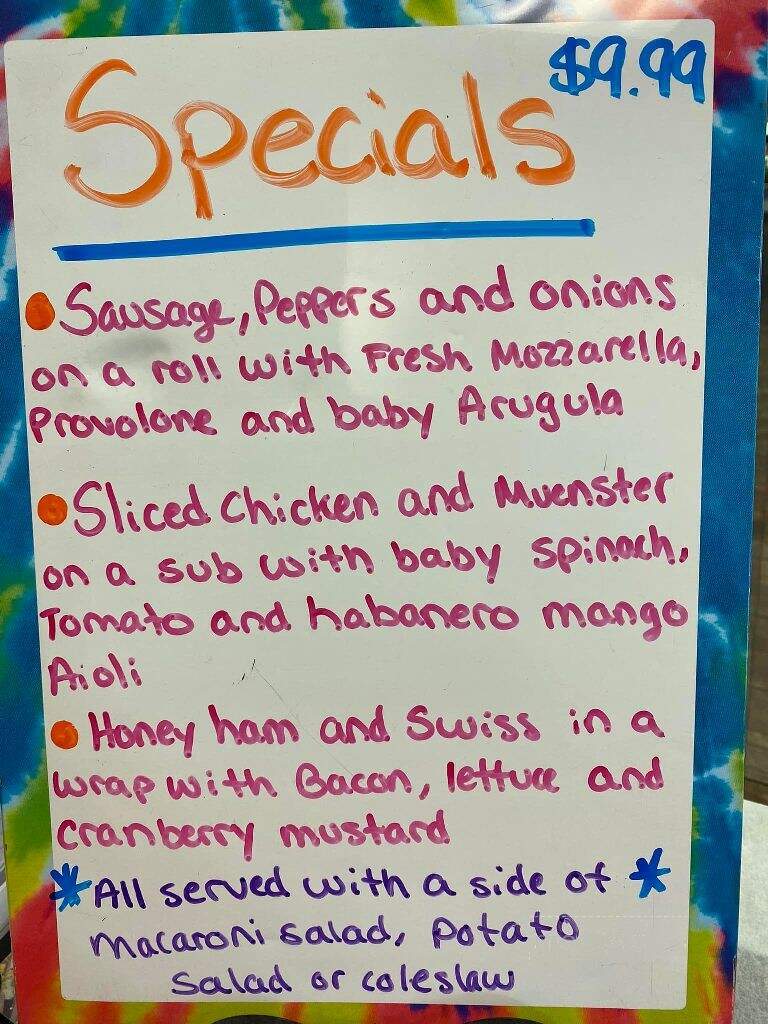 $9.99
Specials
Sausage, Peppers and onions
on a roll with Fresh Mozzarella,
Provolone and baby Arugula
Sliced Chicken and Muenster
on a sub with baby spinach,
Tomato and habanero mango
Aioli
Honey ham and Swiss in a
wrap with Bacon, lettuce and
cranberry mustard
*All served with a side of *
macaroni salad, potato
salad or coleslaw